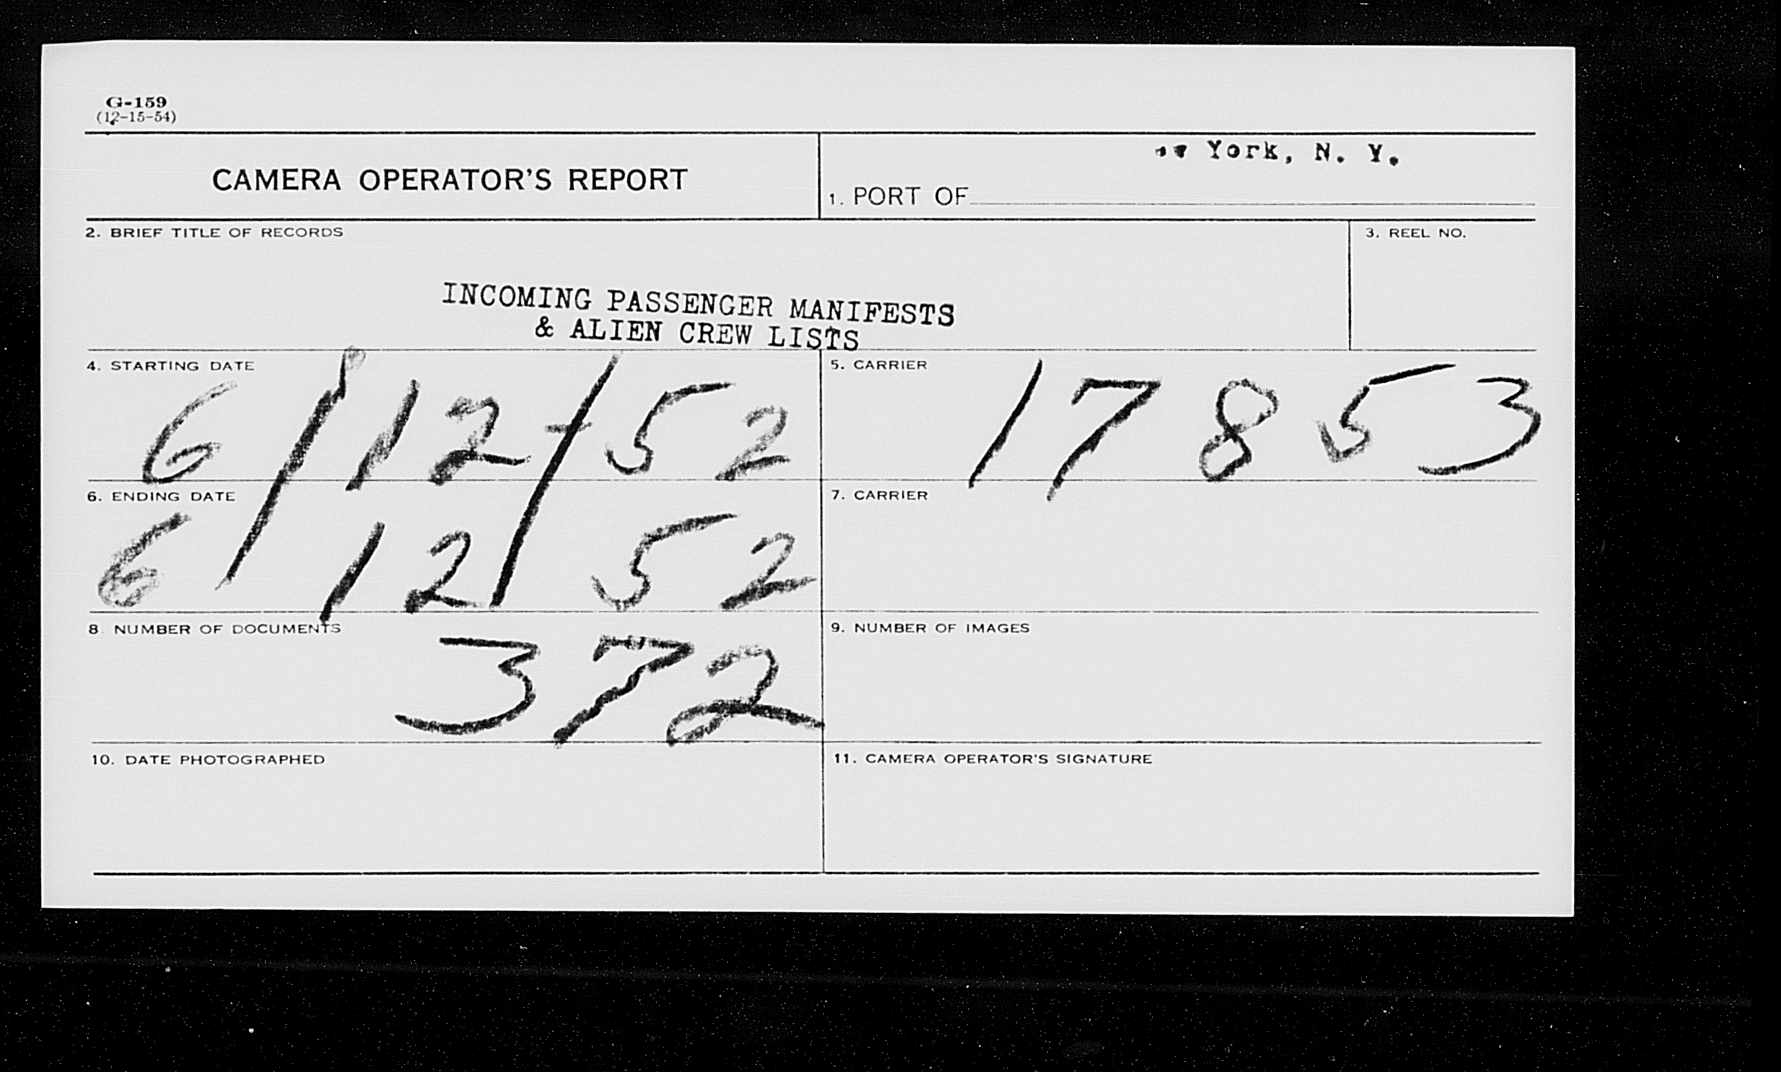 G-159
(12-15-54)
CAMERA OPERATOR'S REPORT
York, N. Y.
1. PORT OF
2. BRIEF TITLE OF RECORDS
3. REEL NO.
INCOMING PASSENGER MANIFESTS
& ALIEN CREW LISTS
4. STARTING DATE
6/12/52
5. CARRIER
17853
6. ENDING DATE
6 12 52
7. CARRIER
8 NUMBER OF DOCUMENTS
372
9. NUMBER OF IMAGES
10. DATE PHOTOGRAPHED
11. CAMERA OPERATOR'S SIGNATURE